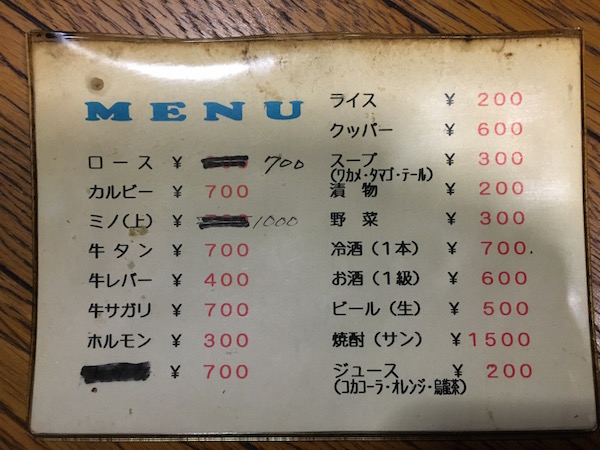 MENU
ロース ¥ 700
カルビー ¥ 700
ミノ(上) ¥ 1000
牛タン ¥ 700
牛レバー ¥ 400
牛サガリ ¥ 700
ホルモン ¥ 300
¥ 700
ライス ¥ 200
クッパー ¥ 600
スープ ¥ 300
(ワカメ・タマゴ・テール)
漬物 ¥ 200
野菜 ¥ 300
冷酒(1本) ¥ 700.
お酒(1級) ¥ 600
ビール(生) ¥ 500
焼酎(サン) ¥ 1500
ジュース ¥ 200
(コカコーラ・オレンジ・烏龍茶)